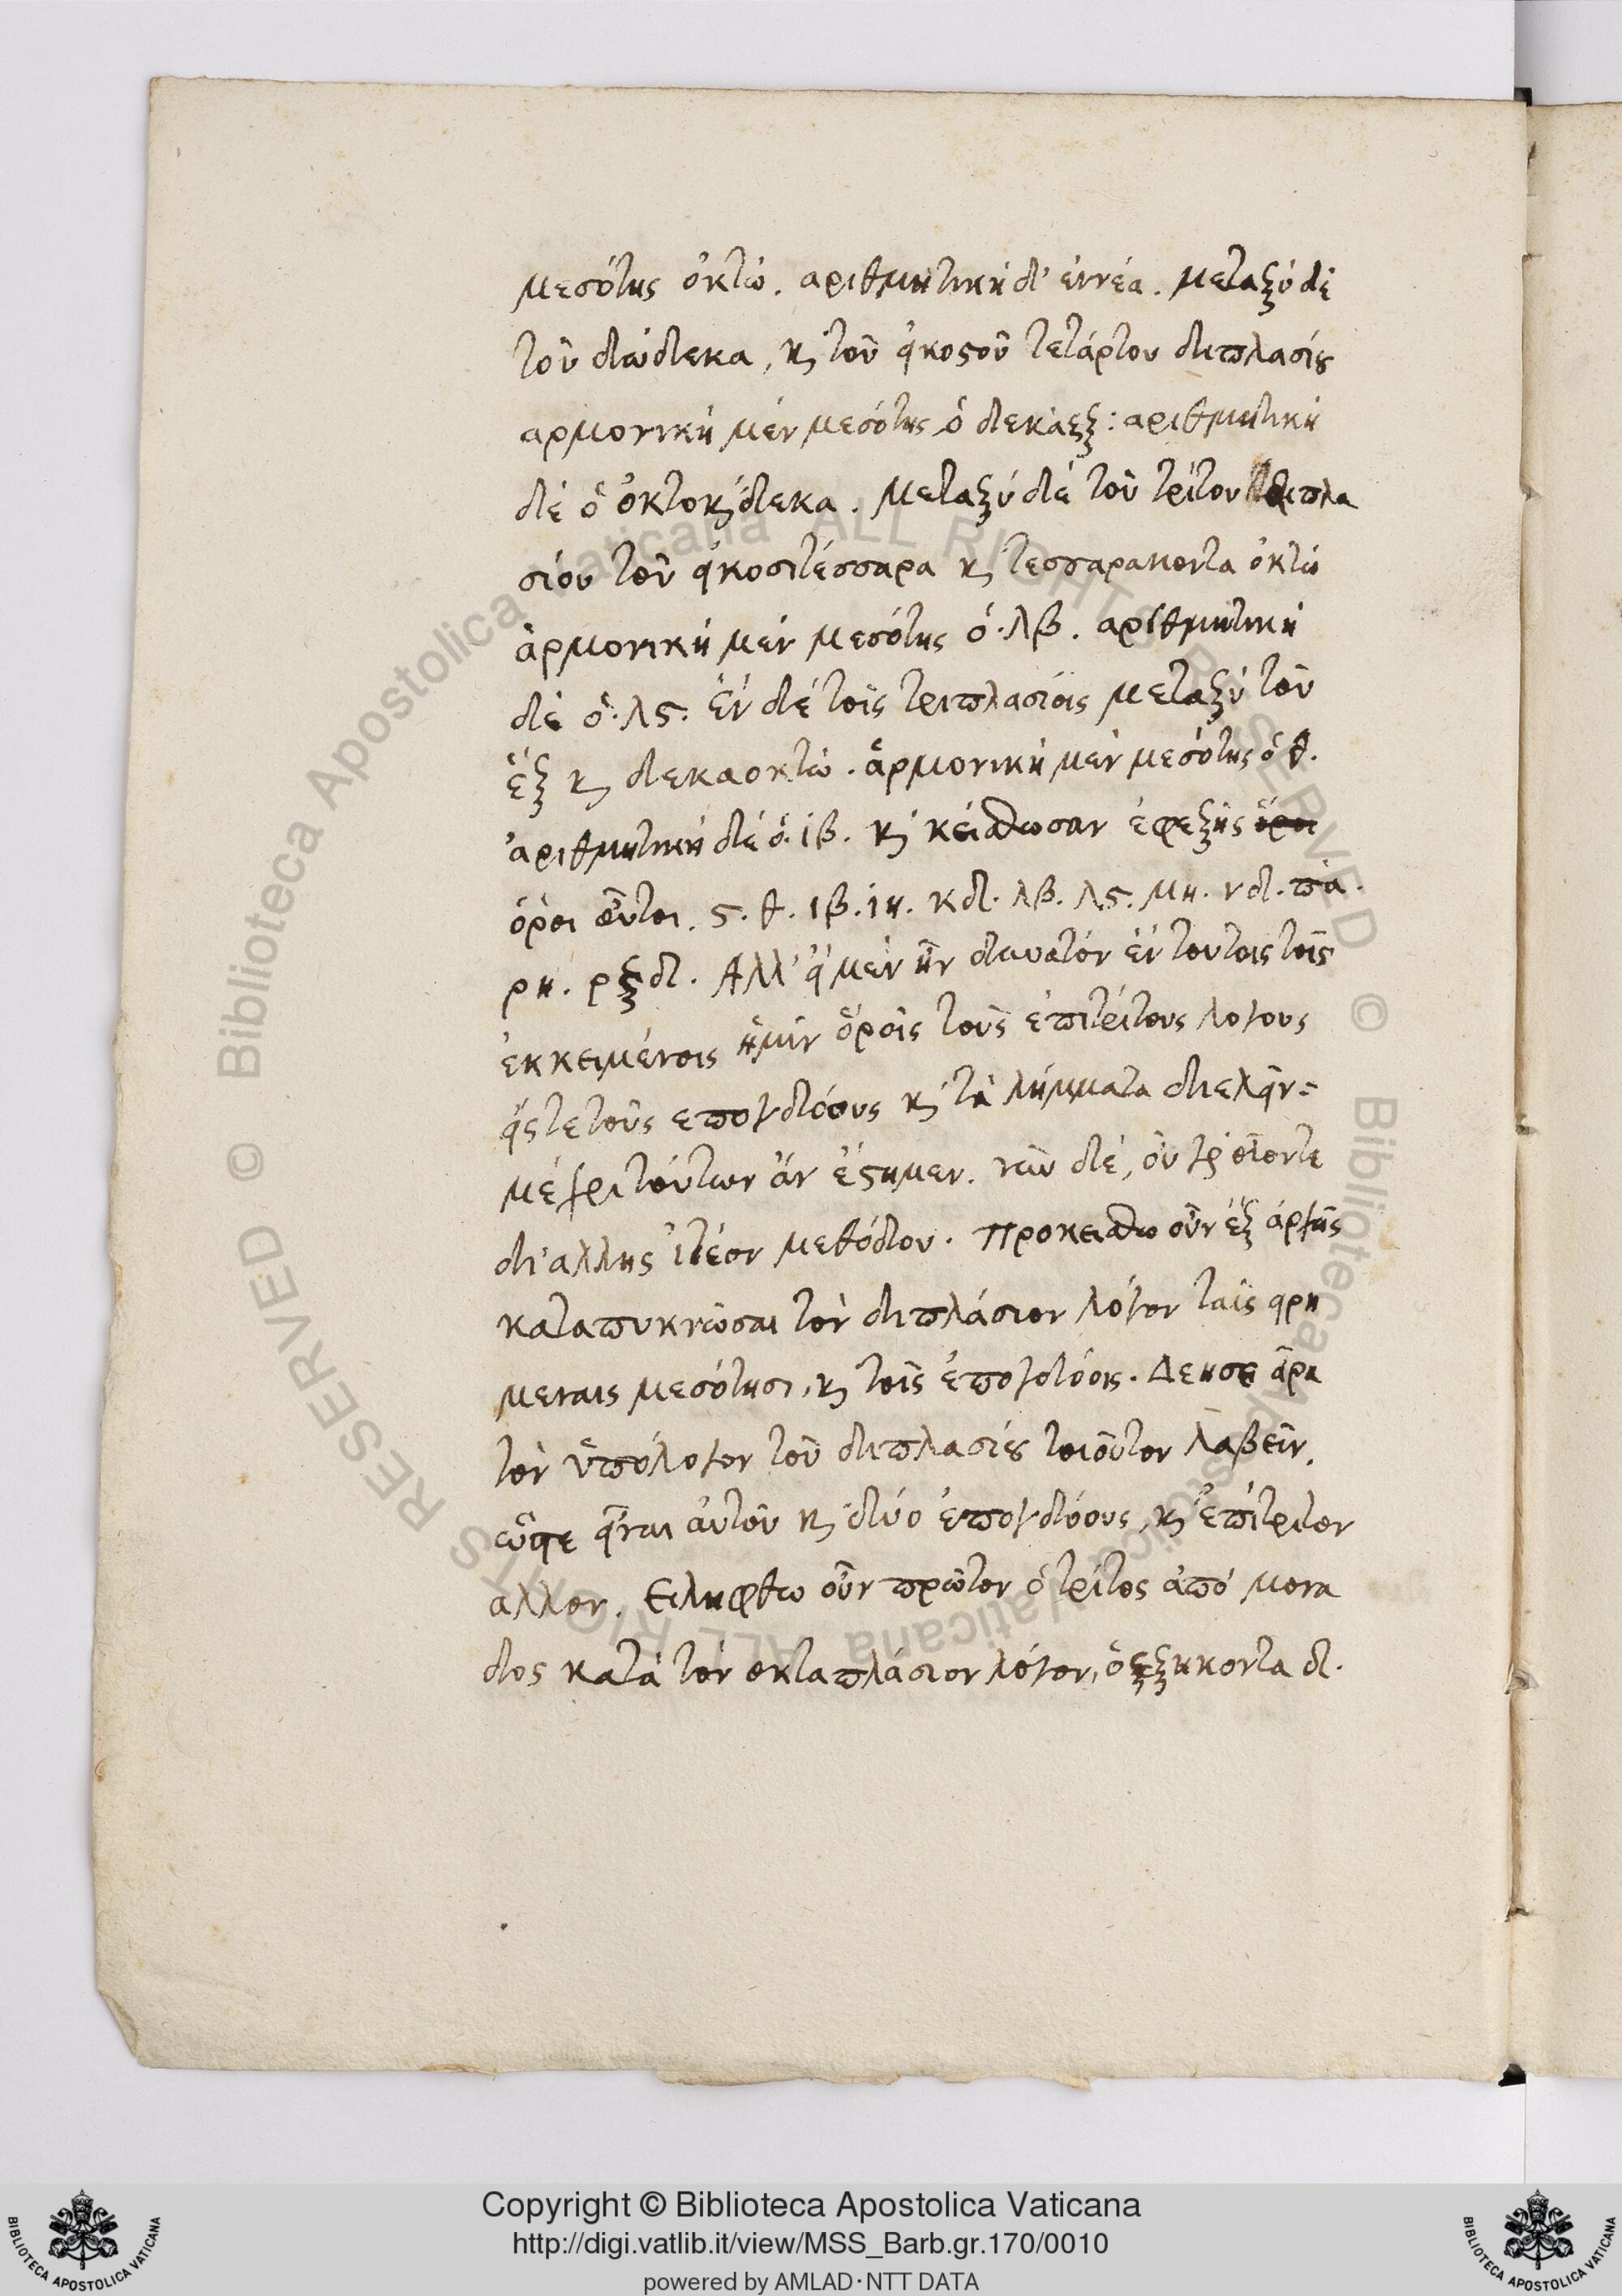 μεσότης ὀκτώ. αριθμητική δ' ἐννέα. μεταξύ δὲ
τοῦ δώδεκα, κ̣ τοῦ εἰκοςοῦ τετάρτου διπλασίȣ
αρμονική μέν μεσότης ὁ δεκάεξ: αριθμητική
δὲ ὁ ὀκτοκ̀δεκα. μεταξύ δὲ τοῦ τρίτου διπλα
σίου τοῦ εἰκοσιτέσσαρα κ̣ τεσσαρακοντα ὀκτώ
ἁρμονική μέν μεσότης ὁ·λβ. αριθμητική
δὲ ὁ·λϛ. ἐν δὲ τοῖς τριπλασίοις μεταξύ τοῦ
ἕξ κ̣ δεκαοκτώ. ἁρμονική μέν μεσότης ὁ θ.
ἀριθμητική δὲ ὁ·ιβ. κ̀ κείσθωσαν ἐφεξῆς ὅροι
ὅροι οὗτοι. ϛ. θ. ιβ. ιη. κδ. λβ. λϛ. μη. νδ. πα.
ρη. ρξδ. Αλλ' εἰ μέν ἦν δυνατόν ἐν τουτοις τοῖς
ἐκκειμένοις ἡμῖν ὅροις τοὺς ἐπιτρίτους λογους
εἴς τε τοὺς επογδόους κ̀ τὰ λήμματα διελεῖν=
μέχρι τούτων ἄν ἔςημεν. νῦν δὲ, οὐ γὰρ οἷοντε
δι' αλλης ἰτέον μεθόδου. Προκεισθω οὖν ἐξ ἀρχῆς
καταπυκνῶσαι τὸν διπλάσιον λόγον ταῖς ειρη
μεναις μεσότησι, κ̣ τοῖς ἐπογδόοις. Δεησει ἄρα
τὸν ὑπόλογον τοῦ διπλασίȣ τοιοῦτον λαβεῖν.
ὥςτε εἶναι αὐτοῦ κ̀ δύο ἐπογδόους, κ̀ ἐπίτριτον
αλλον. Ειληφθω οὖν πρῶτον ὁ τρίτος ἀπὸ μονα
δος κατὰ τὸν οκταπλάσιον λόγον, ὁ εξηκοντα δ.
Copyright © Biblioteca Apostolica Vaticana
http://digi.vatlib.it/view/MSS_Barb.gr.170/0010
powered by AMLAD·NTT DATA